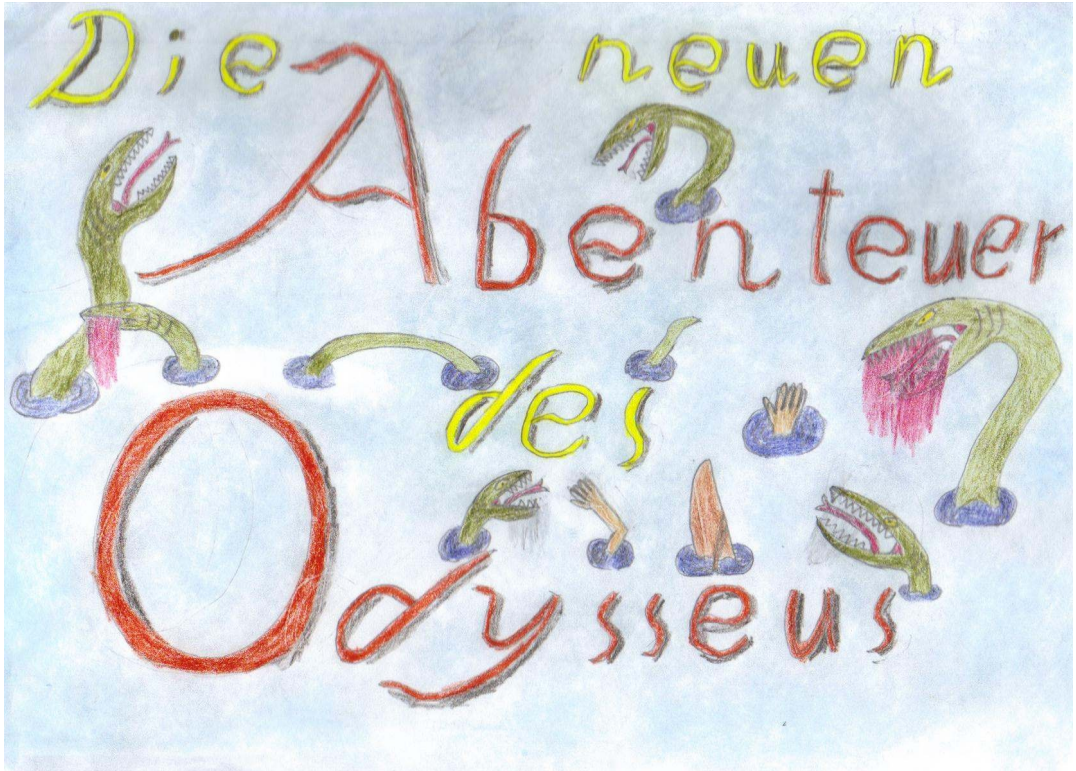 Die neuen
Abenteuer
des
Odysseus